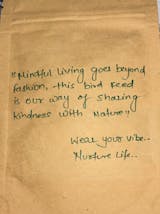 "Mindful living goes beyond
fashion, this bird feed
is our way of sharing
kindness with Nature"
Wear your vibe..
Nurture Life..